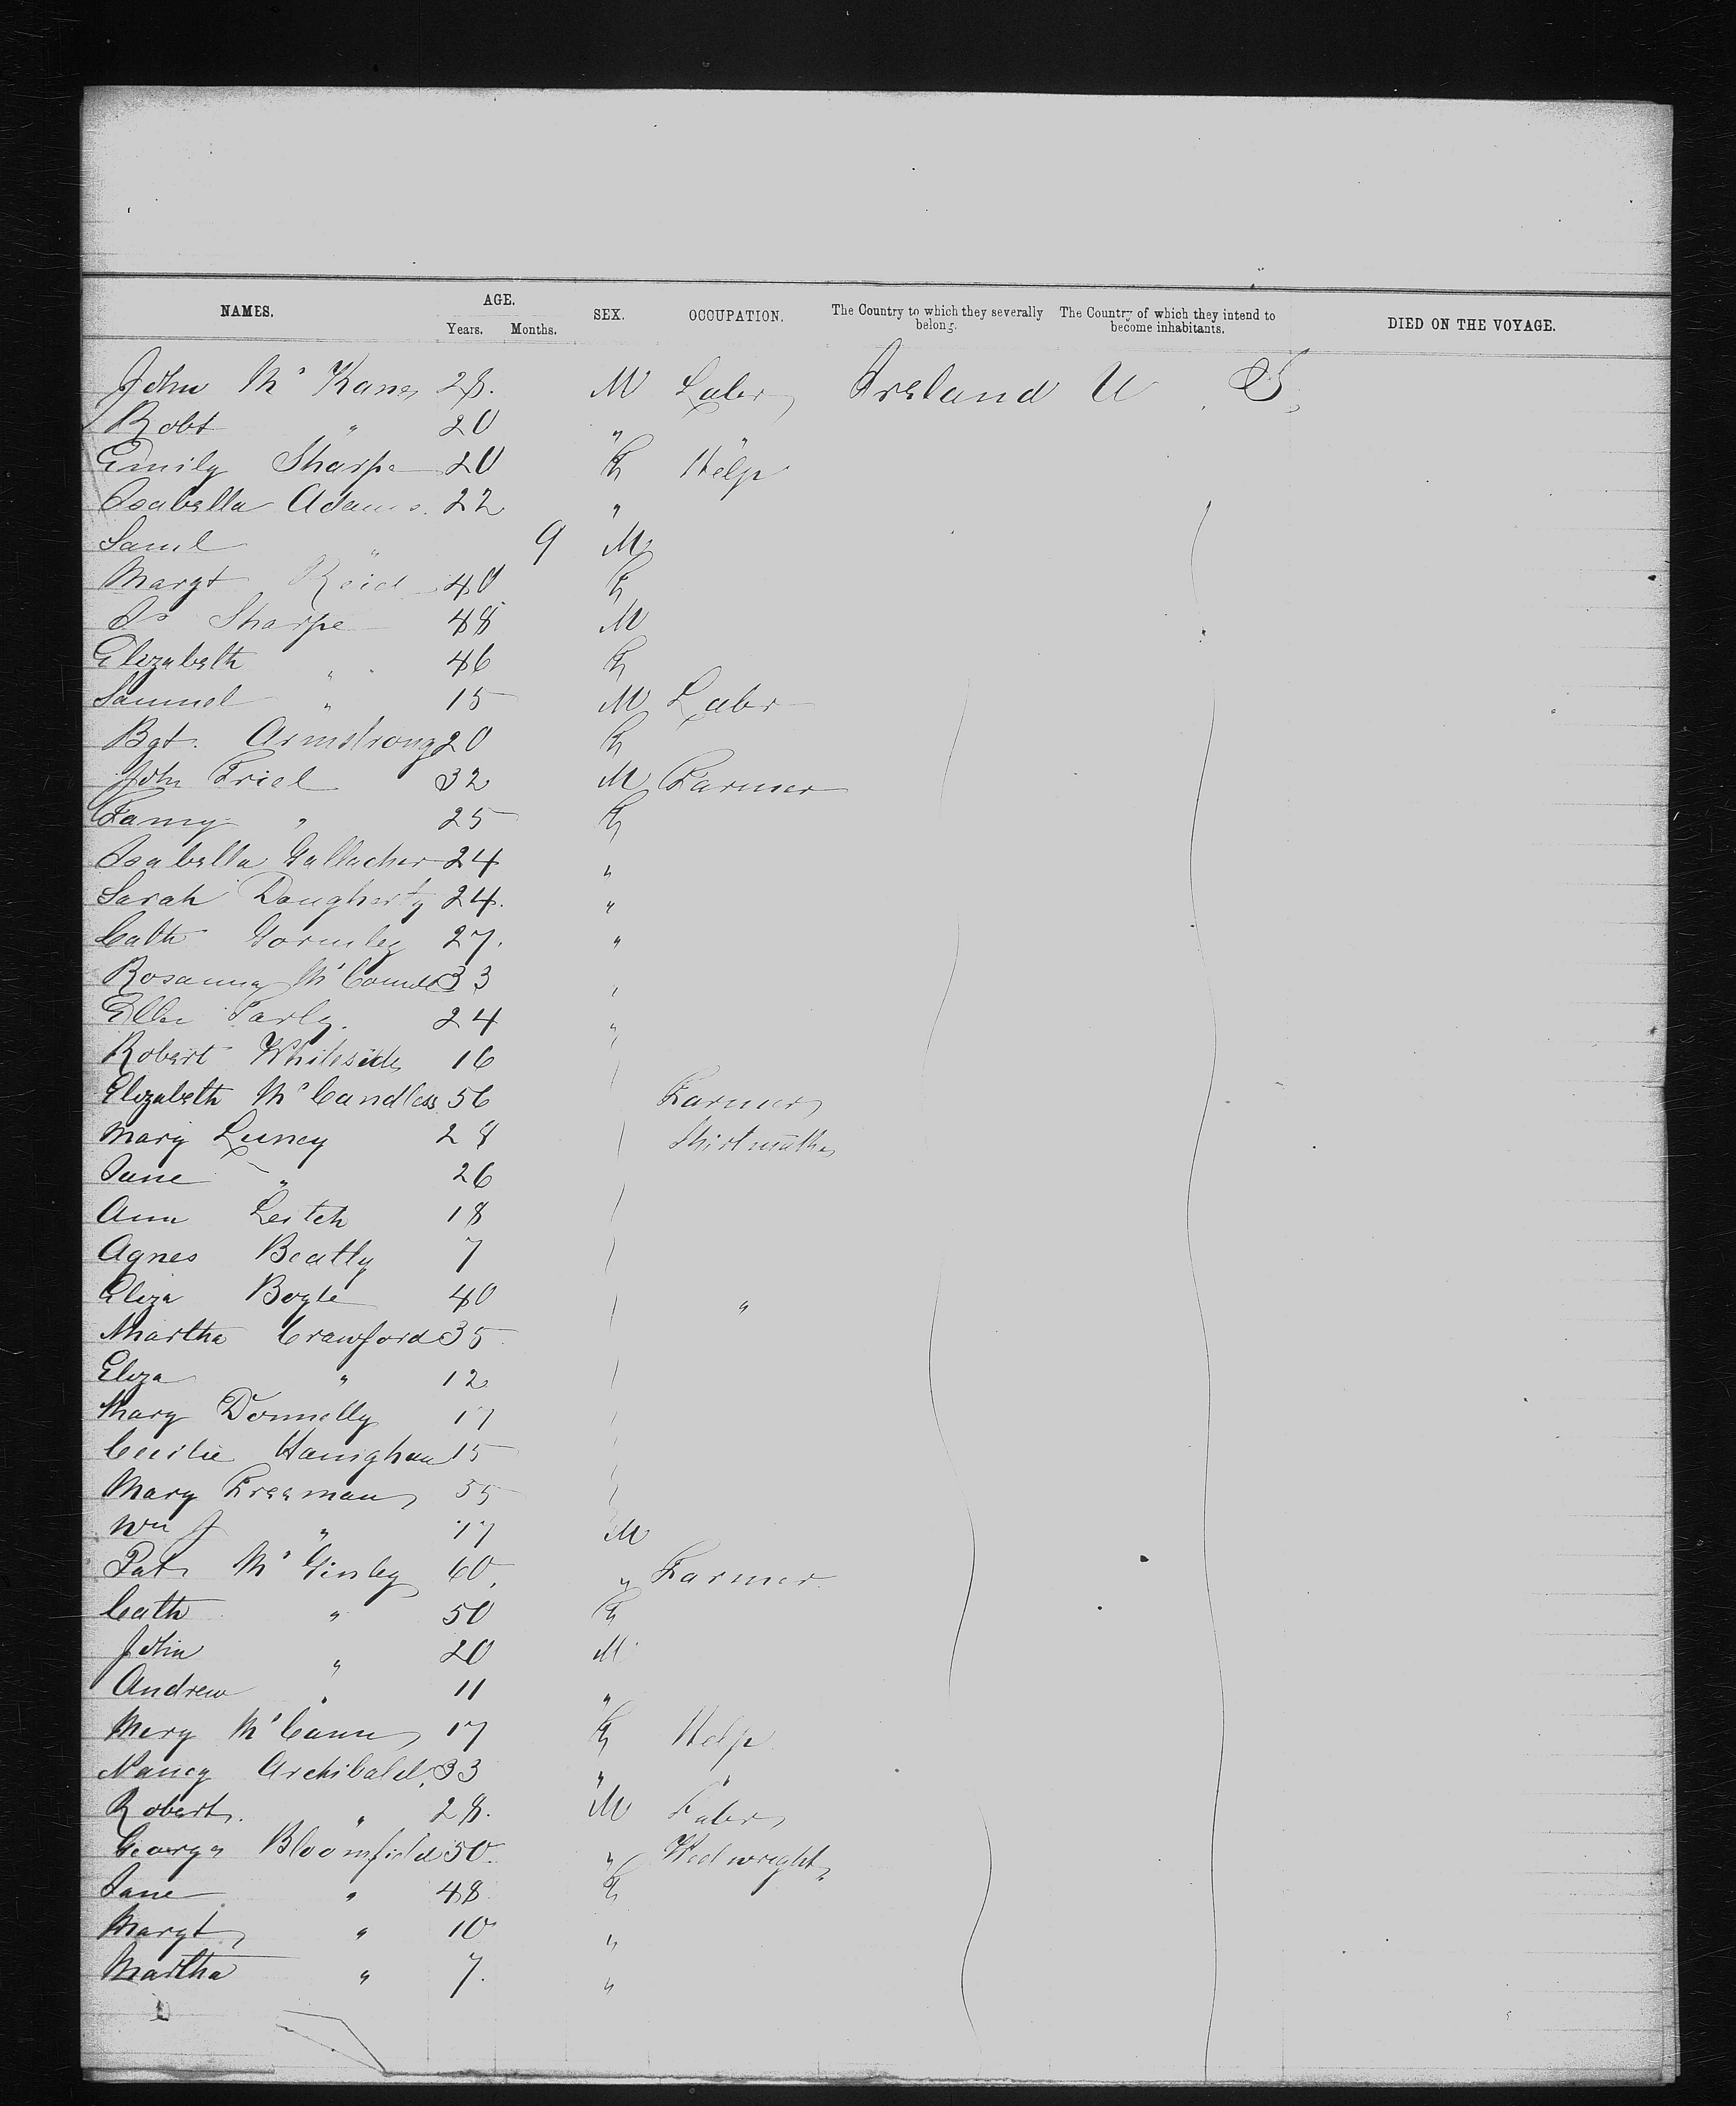 NAMES. AGE. Years. Months. SEX. OCCUPATION. The Country to which they severally belong. The Country of which they intend to become inhabitants. DIED ON THE VOYAGE.
John Mc Kane 28. M Labr Ireland U S.
Robt " 20 " "
Emily Sharpe 20 F Help
Isabella Adams. 22 "
Saml " 9 M
Margt Reid 40 F
Js Sharpe 48 M
Elizabeth " 46 F
Samuel " 15 M Labr
Bgt. Armstrong 20 F
John Friel 32 M Farmer
Fanny " 25 F
Isabella Gallacher 24 "
Sarah Dougherty 24. "
Cath Gormley 27. "
Rosanna 33 "
Farly. 24 "
Robert Whiteside 16
Elizabeth Mc Candless 56 Farmer
Mary Luncy 28
Jane " 26
Ann Leitch 18
Agnes Beatty 7
Eliza Boyle 40 "
Martha Crawford 35
Eliza " 12
Mary Donnelly 17
Cecilie Hanighan 15
Mary Freeman 55
Wm J " 17 M
Pat Mc Ginley 60 " Farmer
Cath " 50 F
John " 20 M
Andrew " 11 "
Mery Mc Cann 17 F Help
Nancy Archibald. 33 " "
Robert. " 28. M Labr
George Bloomfield 50 " Weelwright
Jane " 48 F
Margt " 10 "
Martha " 7. "